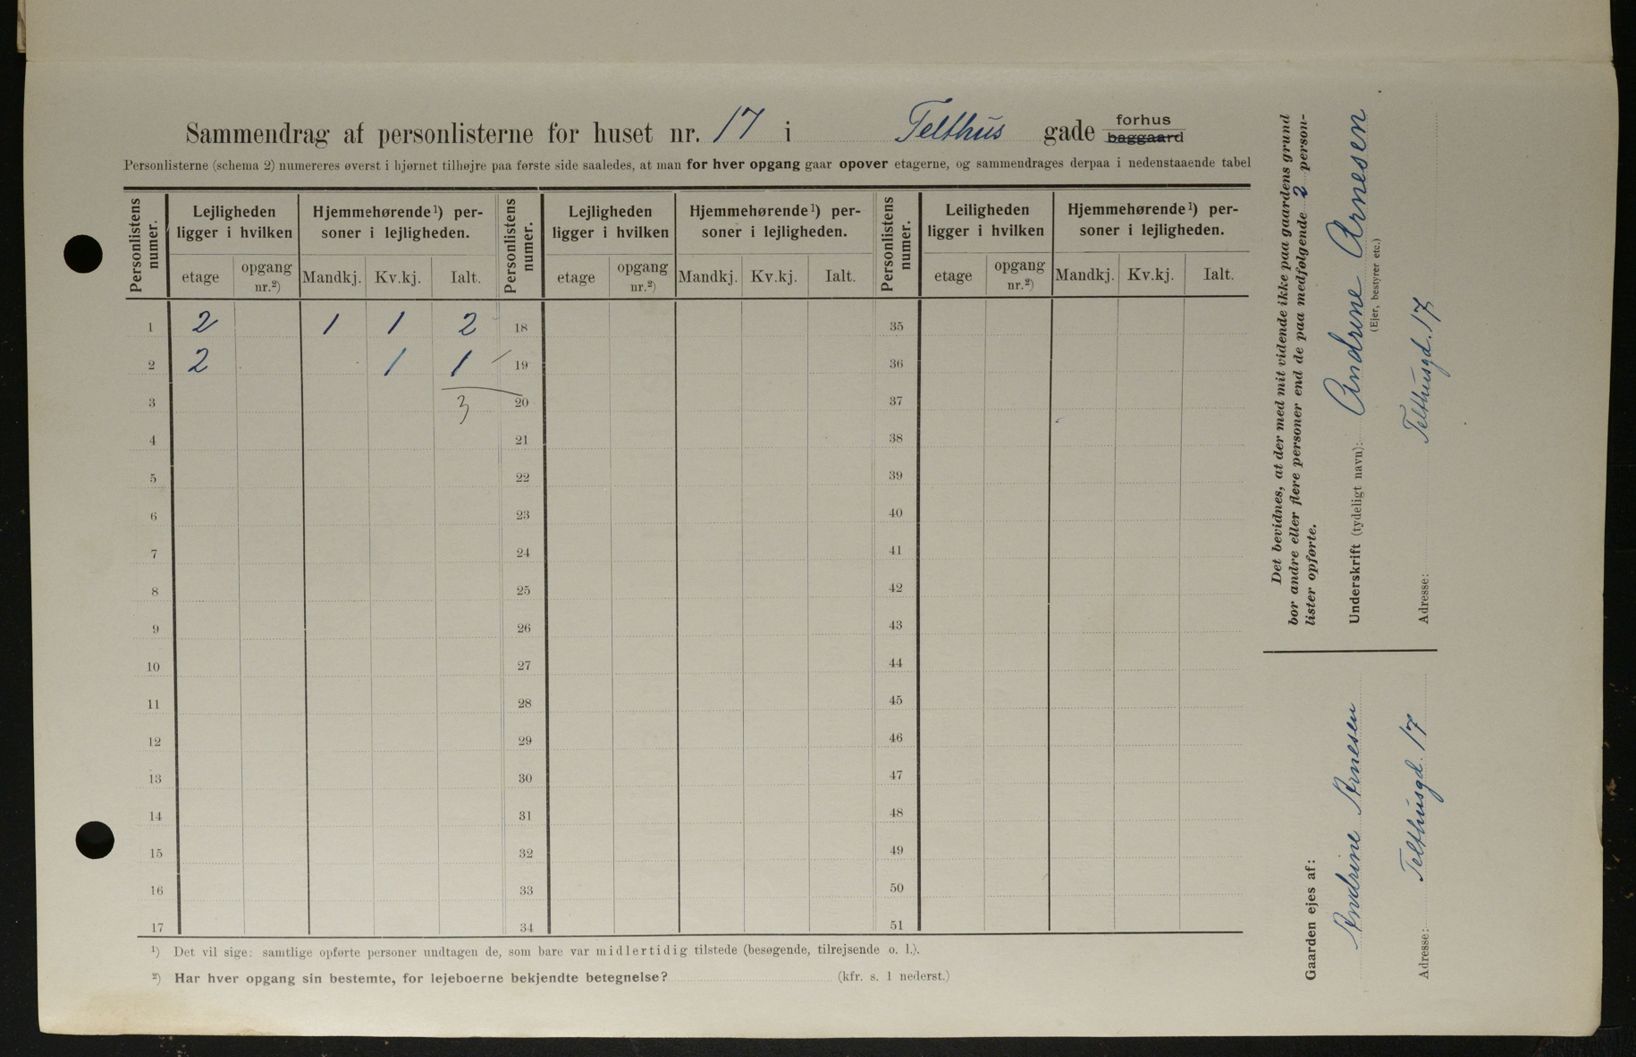 Sammendrag af personlisterne for huset nr. 17 i Telthus gade forhus
baggaard
Personlisterne (schema 2) numereres øverst i hjørnet tilhøjre paa første side saaledes, at man for hver opgang gaar opover etagerne, og sammendrages derpaa i nedenstaaende tabel
Personlistens numer. Lejligheden ligger i hvilken Hjemmehørende¹) personer i lejligheden. Personlistens numer. Lejligheden ligger i hvilken Hjemmehørende¹) personer i lejligheden. Personlistens numer. Leiligheden ligger i hvilken Hjemmehørende¹) personer i lejligheden.
etage opgang nr.²) Mandkj. Kv.kj. Ialt. etage opgang nr.²) Mandkj. Kv.kj. Ialt. etage opgang nr.²) Mandkj. Kv.kj. Ialt.
1 2 1 1 2 18 35
2 2 1 1 19 36
3 3 20 37
4 21 38
5 22 39
6 23 40
7 24 41
8 25 42
9 26 43
10 27 44
11 28 45
12 29 46
13 30 47
14 31 48
15 32 49
16 33 50
17 34 51
¹) Det vil sige: samtlige opførte personer undtagen de, som bare var midlertidig tilstede (besøgende, tilrejsende o. l.).
²) Har hver opgang sin bestemte, for lejeboerne bekjendte betegnelse? (kfr. s. 1 nederst.)
Det bevidnes, at der med mit vidende ikke paa gaardens grund
bor andre eller flere personer end de paa medfølgende 2 person-
lister opførte.
Underskrift (tydeligt navn): Andrine Arnesen
(Ejer, bestyrer etc.)
Adresse: Telthusgd. 17
Gaarden ejes af:
Andrine Arnesen
Adresse: Telthusgd. 17